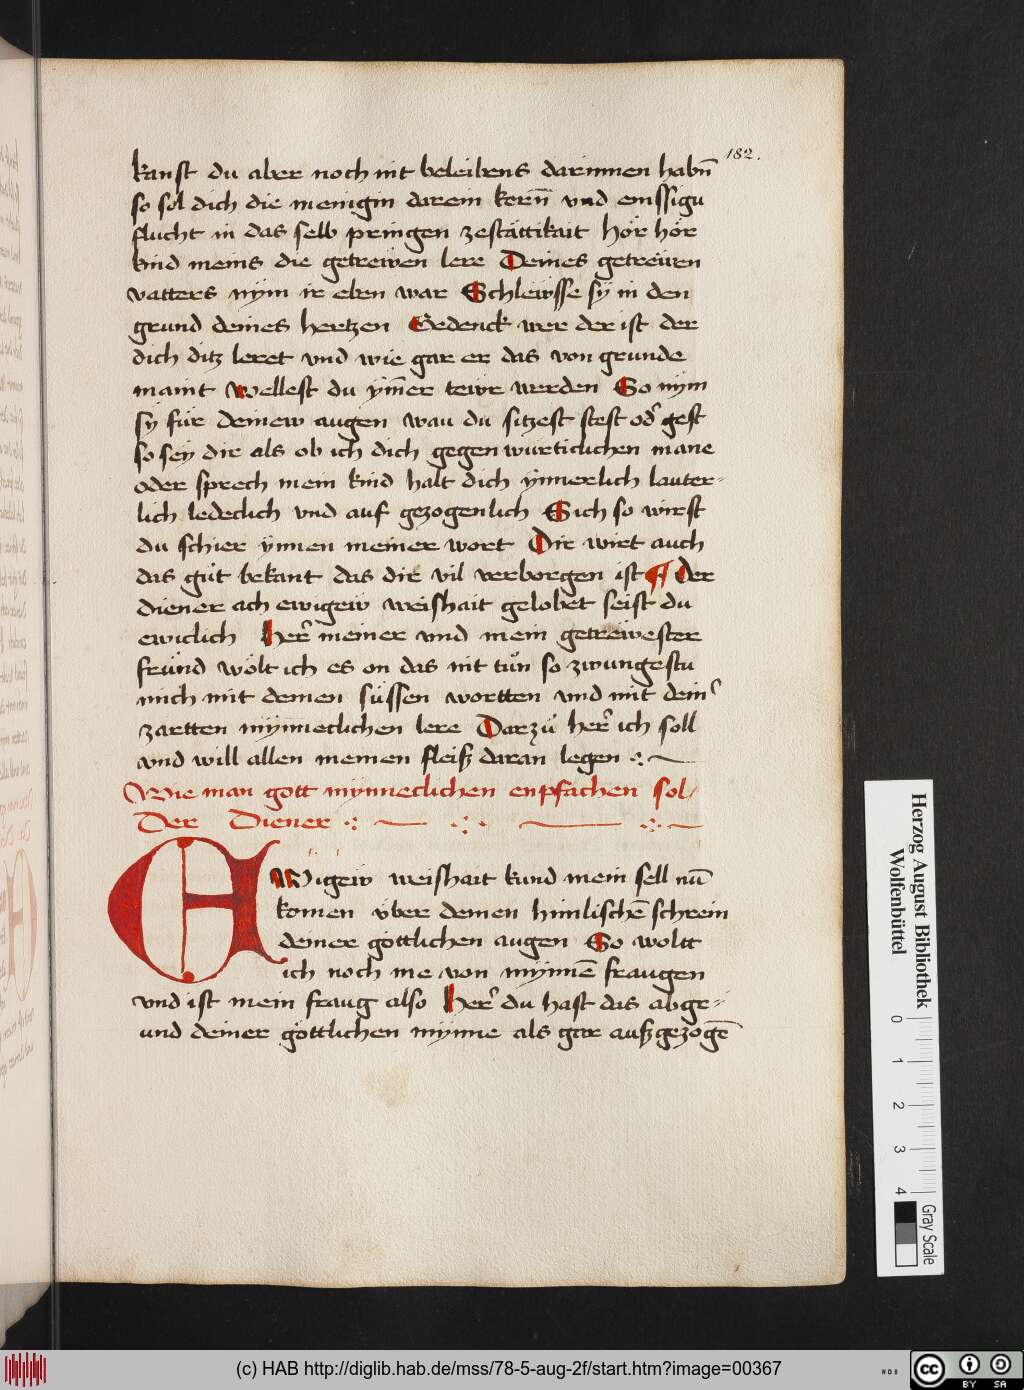 182.
kanst du aber noch nit beleibens darinnen habn̄
so sol dich die menigin darein kern̄ vnd emssigu
flucht in das selb pringen zestättikait hör hör
kind meins die getrewen lere Deines getrewen
vatters nym ir eben war Schlewsse sy in den
grund deines hertzen Gedenck wer der ist der
dich ditz leret vnd wie gar er das von grunde
maint wellest du ym̄er tewr werden So nym
sy für deinew augen wau du sitzest stest od̓ gest
so sey dir als ob ich dich gegenwürticlichen mane
oder sprech mein kind halt dich ynnerlich lauter-
lich ledeclich vnd auf gezogenlich Sich so wirst
du schier ynnen meiner wort Dir wirt auch
das gůt bekant das dir vil verborgen ist ¶ Der
diener ach ewigew weishait gelobet seist du
ewiclich Her̓ meiner vnd mein getrewester
fründ wölt ich es on das nit tůn so zwungestu
mich mit deinen süssen wortten vnd mit dein̓
zartten mynneclichen lere Darzů her̓ ich soll
vnd will allen meinen fleiß daran legen
Wie man gott mynneclichen enpfachen sol
Der Diener
EWigew weishait kund mein sell nū
komen über deinen himlischē schrein
deiner göttlichen augen So woltt
ich noch me von mynnē fraugen
vnd ist mein fraug also Her̓ du hast das abge-
und deiner göttlichen mynne als gar außgezogē
Herzog August Bibliothek
Wolfenbüttel
0
1
2
3
4
Gray Scale
(c) HAB http://diglib.hab.de/mss/78-5-aug-2f/start.htm?image=00367
cc BY SA